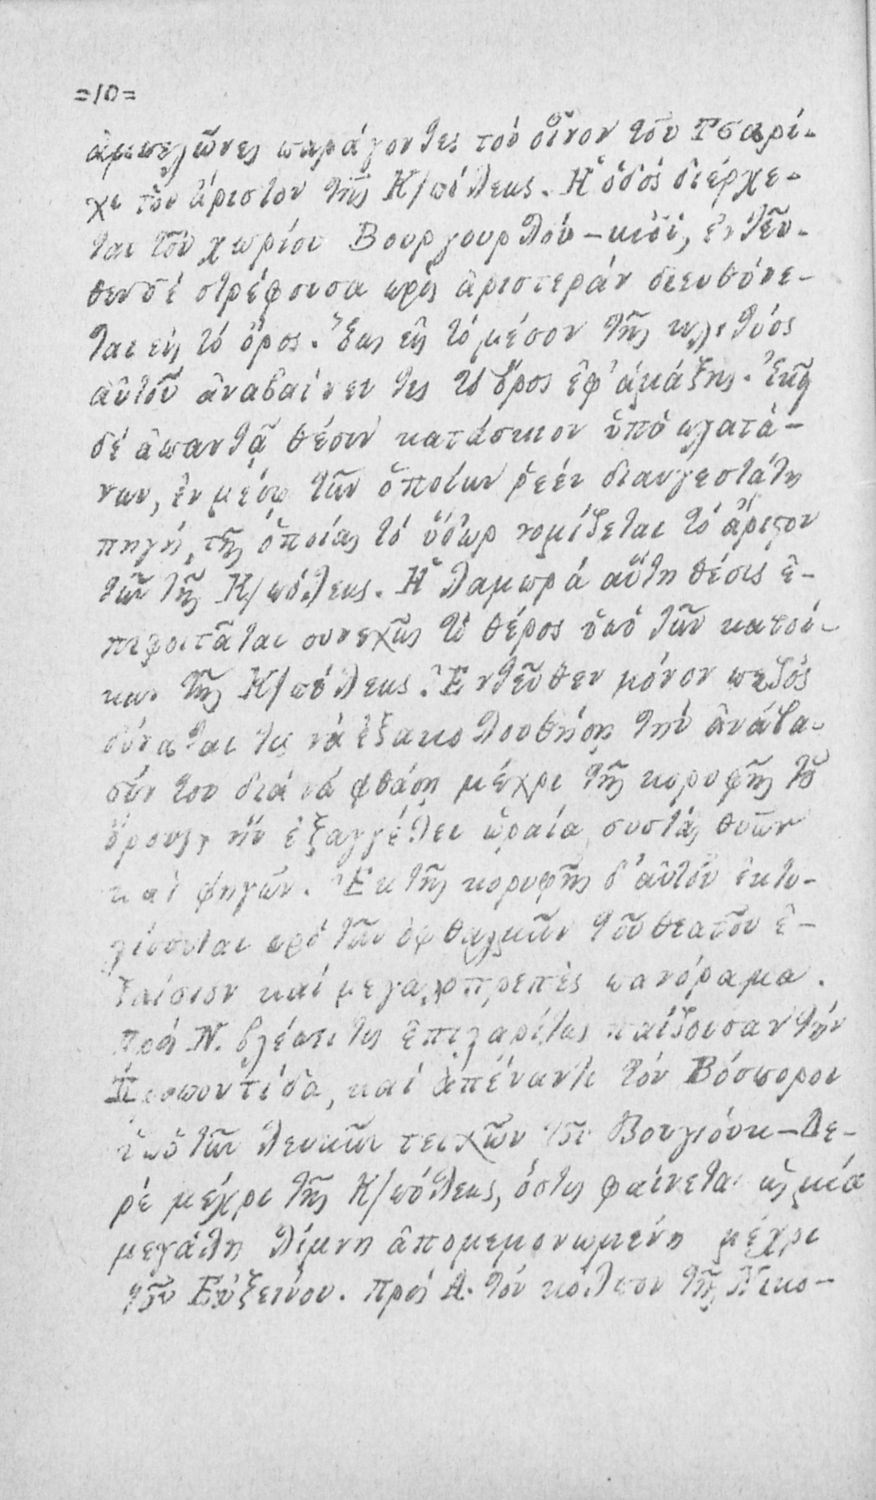 =10=
ἀμπελῶνες παράγοντες τὸν οἶνον τοῦ Τσαρί-
χι τὸν ἄριστον τῆς Κ/πόλεως. Ἡ ὁδός διέρχε-
ται τοῦ χωρίου Βουργουρλού-κιοΐ, ἐντεῦ-
θεν δέ στρέφουσα πρὸς ἀριστεράν διευθύνε-
ται εἰς τό ὄρος. Ἕως εἰς τό μέσον τῆς κλιτύος
αὐτοῦ ἀναβαίνει τις τό ὄρος ἐφ' ἁμάξης. Ἐκεῖ
δέ ἀπαντᾷ θέσιν κατάσκιον ὑπό πλατά-
νων, ἐν μέσῳ τῶν ὁποίων ῥέει διαυγεστάτη
πηγή, τῆς ὁποίας τό ὕδωρ νομίζεται τό ἄριστον
τῶν τῆς Κ/πόλεως. Ἡ λαμπρά αὕτη θέσις ἐ-
πιφοιτᾶται συνεχῶς τό θέρος ὑπό τῶν κατοί-
κων τῆς Κ/πόλεως. Ἐντεῦθεν μόνον πεζός
δύναται τις νά ἐξακολουθήσῃ τήν ἀνάβα-
σίν του διά νά φθάσῃ μέχρι τῆς κορυφῆς τοῦ
ὄρους, ἥν ἐξαγγέλλει ὡραία συστάς θυῶν
καί φηγῶν. Ἐκ τῆς κορυφῆς δ' αὐτοῦ ἐκτυ-
λίσσεται πρό τῶν ὀφθαλμῶν τοῦ θεατοῦ ἐ-
ξαίσιον καί μεγαλοπρεπές πανόραμα.
Πρός Ν. βλέπει τις ἐπιχαρίτως παίζουσαν τήν
Προποντίδα, καί ἀπέναντι τόν Βόσπορον
ἀπό τῶν λευκῶν τειχῶν τοῦ Βουγιούκ-Δε-
ρέ μέχρι τῆς Κ/πόλεως, ὅστις φαίνεται ὡς μία
μεγάλη λίμνη ἀπομεμονωμένη μέχρι
τοῦ Εὐξείνου. Πρός Α. τόν κόλπον τῆς Νικο-